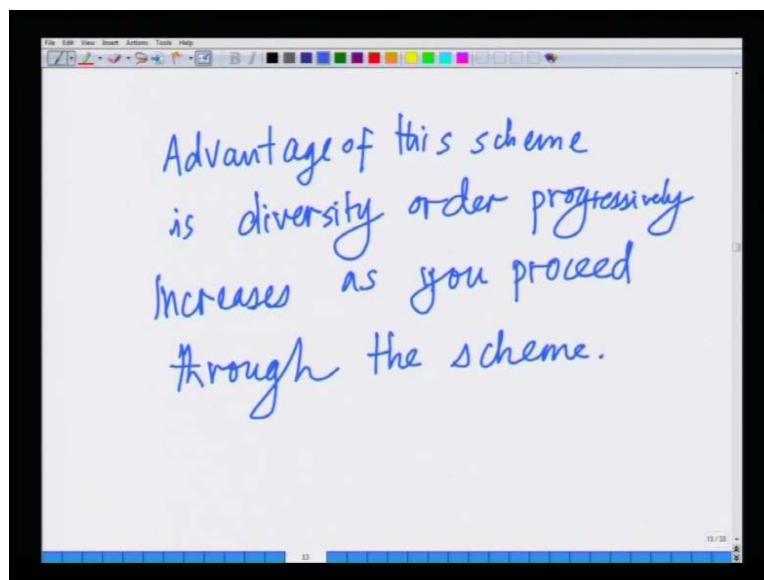 File Edit View Insert Actions Tools Help
B I
Advantage of this scheme
is diversity order progressively
Increases as you proceed
through the scheme.
13/33
13